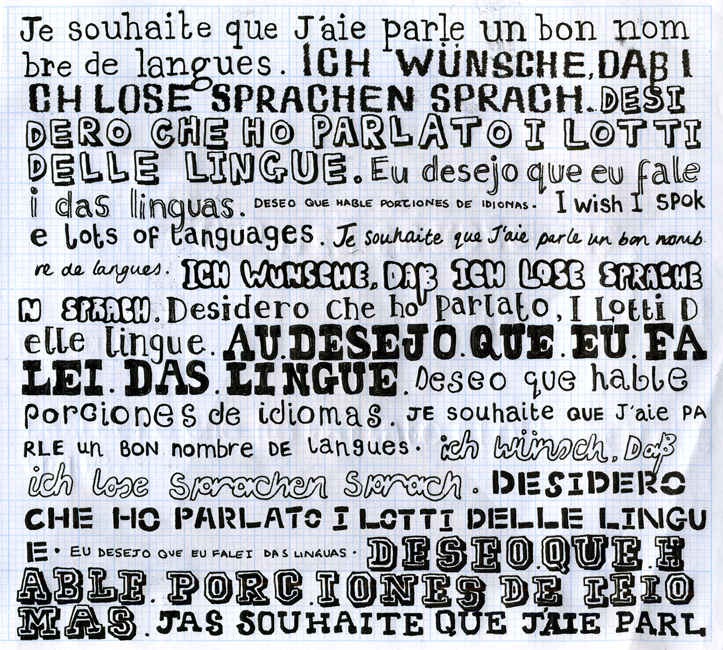 Je souhaite que J'aie parle un bon nom
bre de langues. ICH WÜNSCHE, DAß I
CH LOSE SPRACHEN SPRACH. DESI
DERO CHE HO PARLATO I LOTTI
DELLE LINGUE. Eu desejo que eu fale
i das linguas. DESEO QUE HABLE PORCIONES DE IDIOMAS. I wish I SPOK
e lots of languages. Je souhaite que J'aie parle un bon nomb
re de langues. ICH WUNSCHE, DAß ICH LOSE SPRACHE
N SPRACH. Desidero che ho parlato, I Lotti D
elle lingue. AU.DESEJO.QUE.EU.FA
LEI.DAS.LINGUE. Deseo que hable
porciones de idiomas. JE souhaite QUE J'aie PA
RLE un BON nombre DE langues. ich wünsch, Daß
ich lose Sprachen Sprach. DESIDERO
CHE HO PARLATO I LOTTI DELLE LINGU
E. EU DESEJO QUE EU FALEI DAS LINGUAS. DESEO.QUE.H
ABLE.PORC.IONES DE IEIO
MAS. JAS SOUHAITE QUE J'AIE PARL.